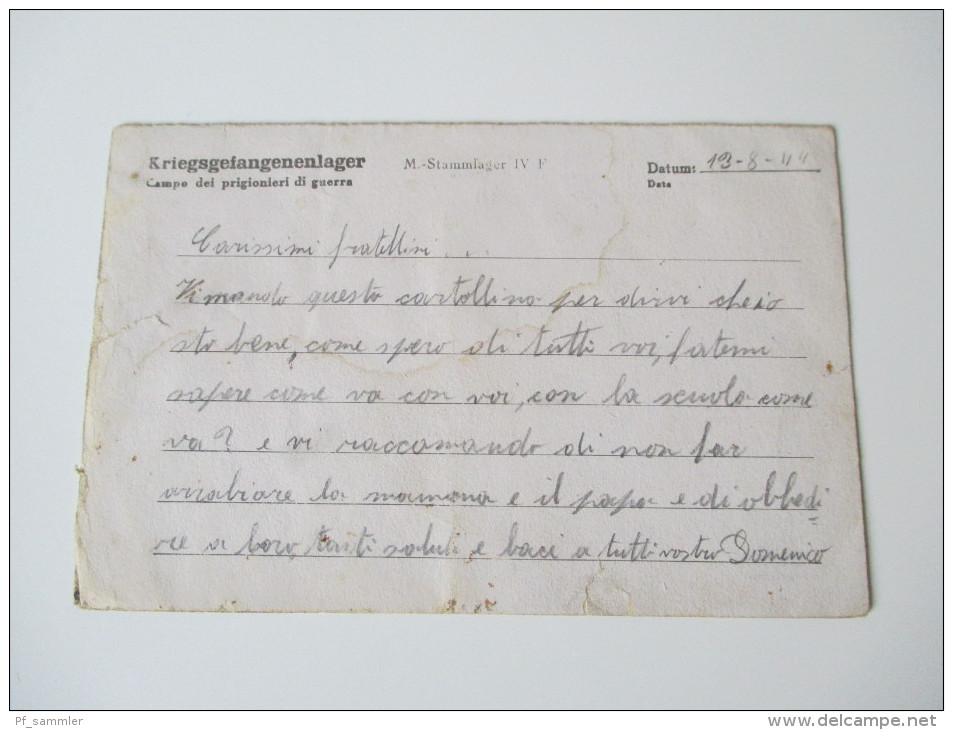 Kriegsgefangenenlager M.-Stammlager IV F Datum: 13-8-44
Campo dei prigionieri di guerra Data
Carissimi fratellini...
Vi mando questa cartollina per dirvi che io
sto bene, come spero di tutti voi, fatemi
sapere come va con voi, con la scuola come
va? e vi raccomando di non far
arrabiare la mamma e il papa e di obbedi=
re a loro tanti saluti e baci a tutti vostro Domenico
Pf_sammler
http://www.delcampe.net